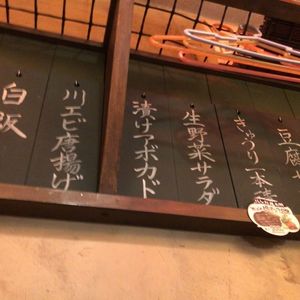 豆腐サ
きゅうり一本漬
生野菜サラダ
漬けアボカド
川エビ唐揚げ
白飯